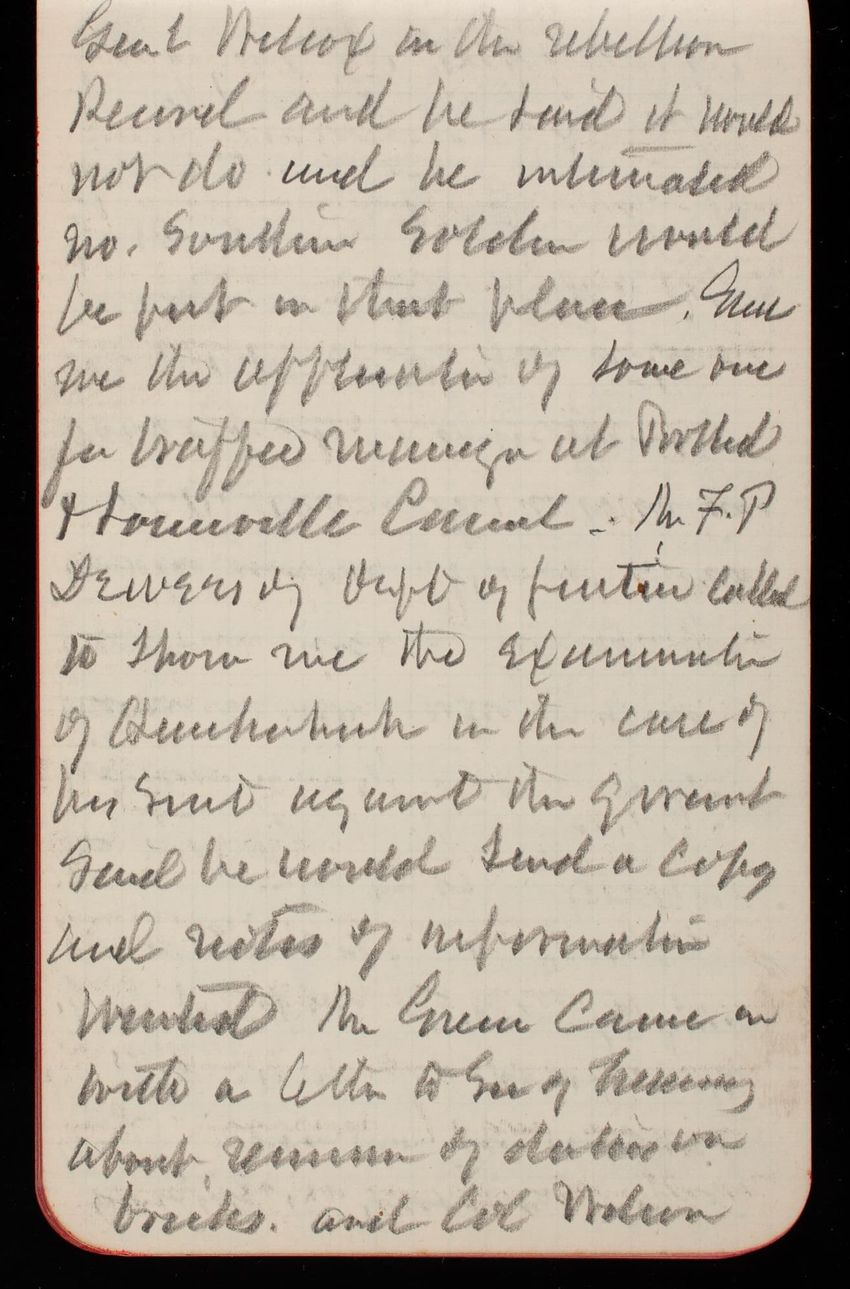 Genl Wilcox in the rebellion
Record and he said it would
not do and he intimated
no. Southern Soldier would
be put in that place. Gave
me the application of some one
for traffic manager at Portland
& Louisville Canal - Mr F. P
Dewees of Dept of Justice called
to show me the examination
of in the case of
his Suit against the Govemt
Said he would Send a Copy
and notes of information
wanted Mr Green Came in
with a letter to Sec of Treasury
about remission of duties on
bricks. and Col Wilson